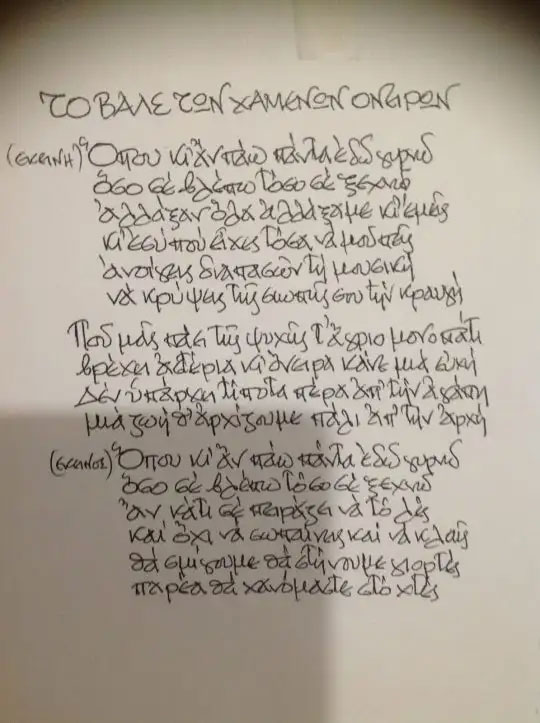 ΤΟ ΒΑΛΣ ΤΩΝ ΧΑΜΕΝΩΝ ΟΝΕΙΡΩΝ
(ΕΚΕΙΝΗ) Ὅπου κι ἂν πάω πάντα ἐδῶ γυρνῶ
ὅσο σὲ βλέπω τόσο σὲ ξεχνῶ
ἀλλάξαν ὅλα ἀλλάξαμε κι ἐμεῖς
κι ἐσὺ ποὺ εἶχες τόσα νὰ μοῦ πεῖς
ἀνοίγεις διαπασῶν τὴ μουσικὴ
νὰ κρύψεις τῆς σιωπῆς σου τὴν κραυγή
Ποῦ μᾶς πάει τῆς ψυχῆς τ' ἄγριο μονοπάτι
βρέχει ἀστέρια κι ὄνειρα κάνε μιὰ εὐχὴ
Δὲν ὑπάρχει τίποτα πέρα ἀπ' τὴν ἀγάπη
μιὰ ζωὴ θ' ἀρχίζουμε πάλι ἀπ' τὴν ἀρχὴ
(ΕΚΕΙΝΟΣ) Ὅπου κι ἂν πάω πάντα ἐδῶ γυρνῶ
ὅσο σὲ βλέπω τόσο σὲ ξεχνῶ
ἂν κάτι σὲ πειράζει νὰ τὸ λὲς
καὶ ὄχι νὰ σωπαίνεις καὶ νὰ κλαῖς
θὰ σμίγουμε θὰ στήνουμε γιορτὲς
παρέα θὰ χανόμαστε στὸ χτές